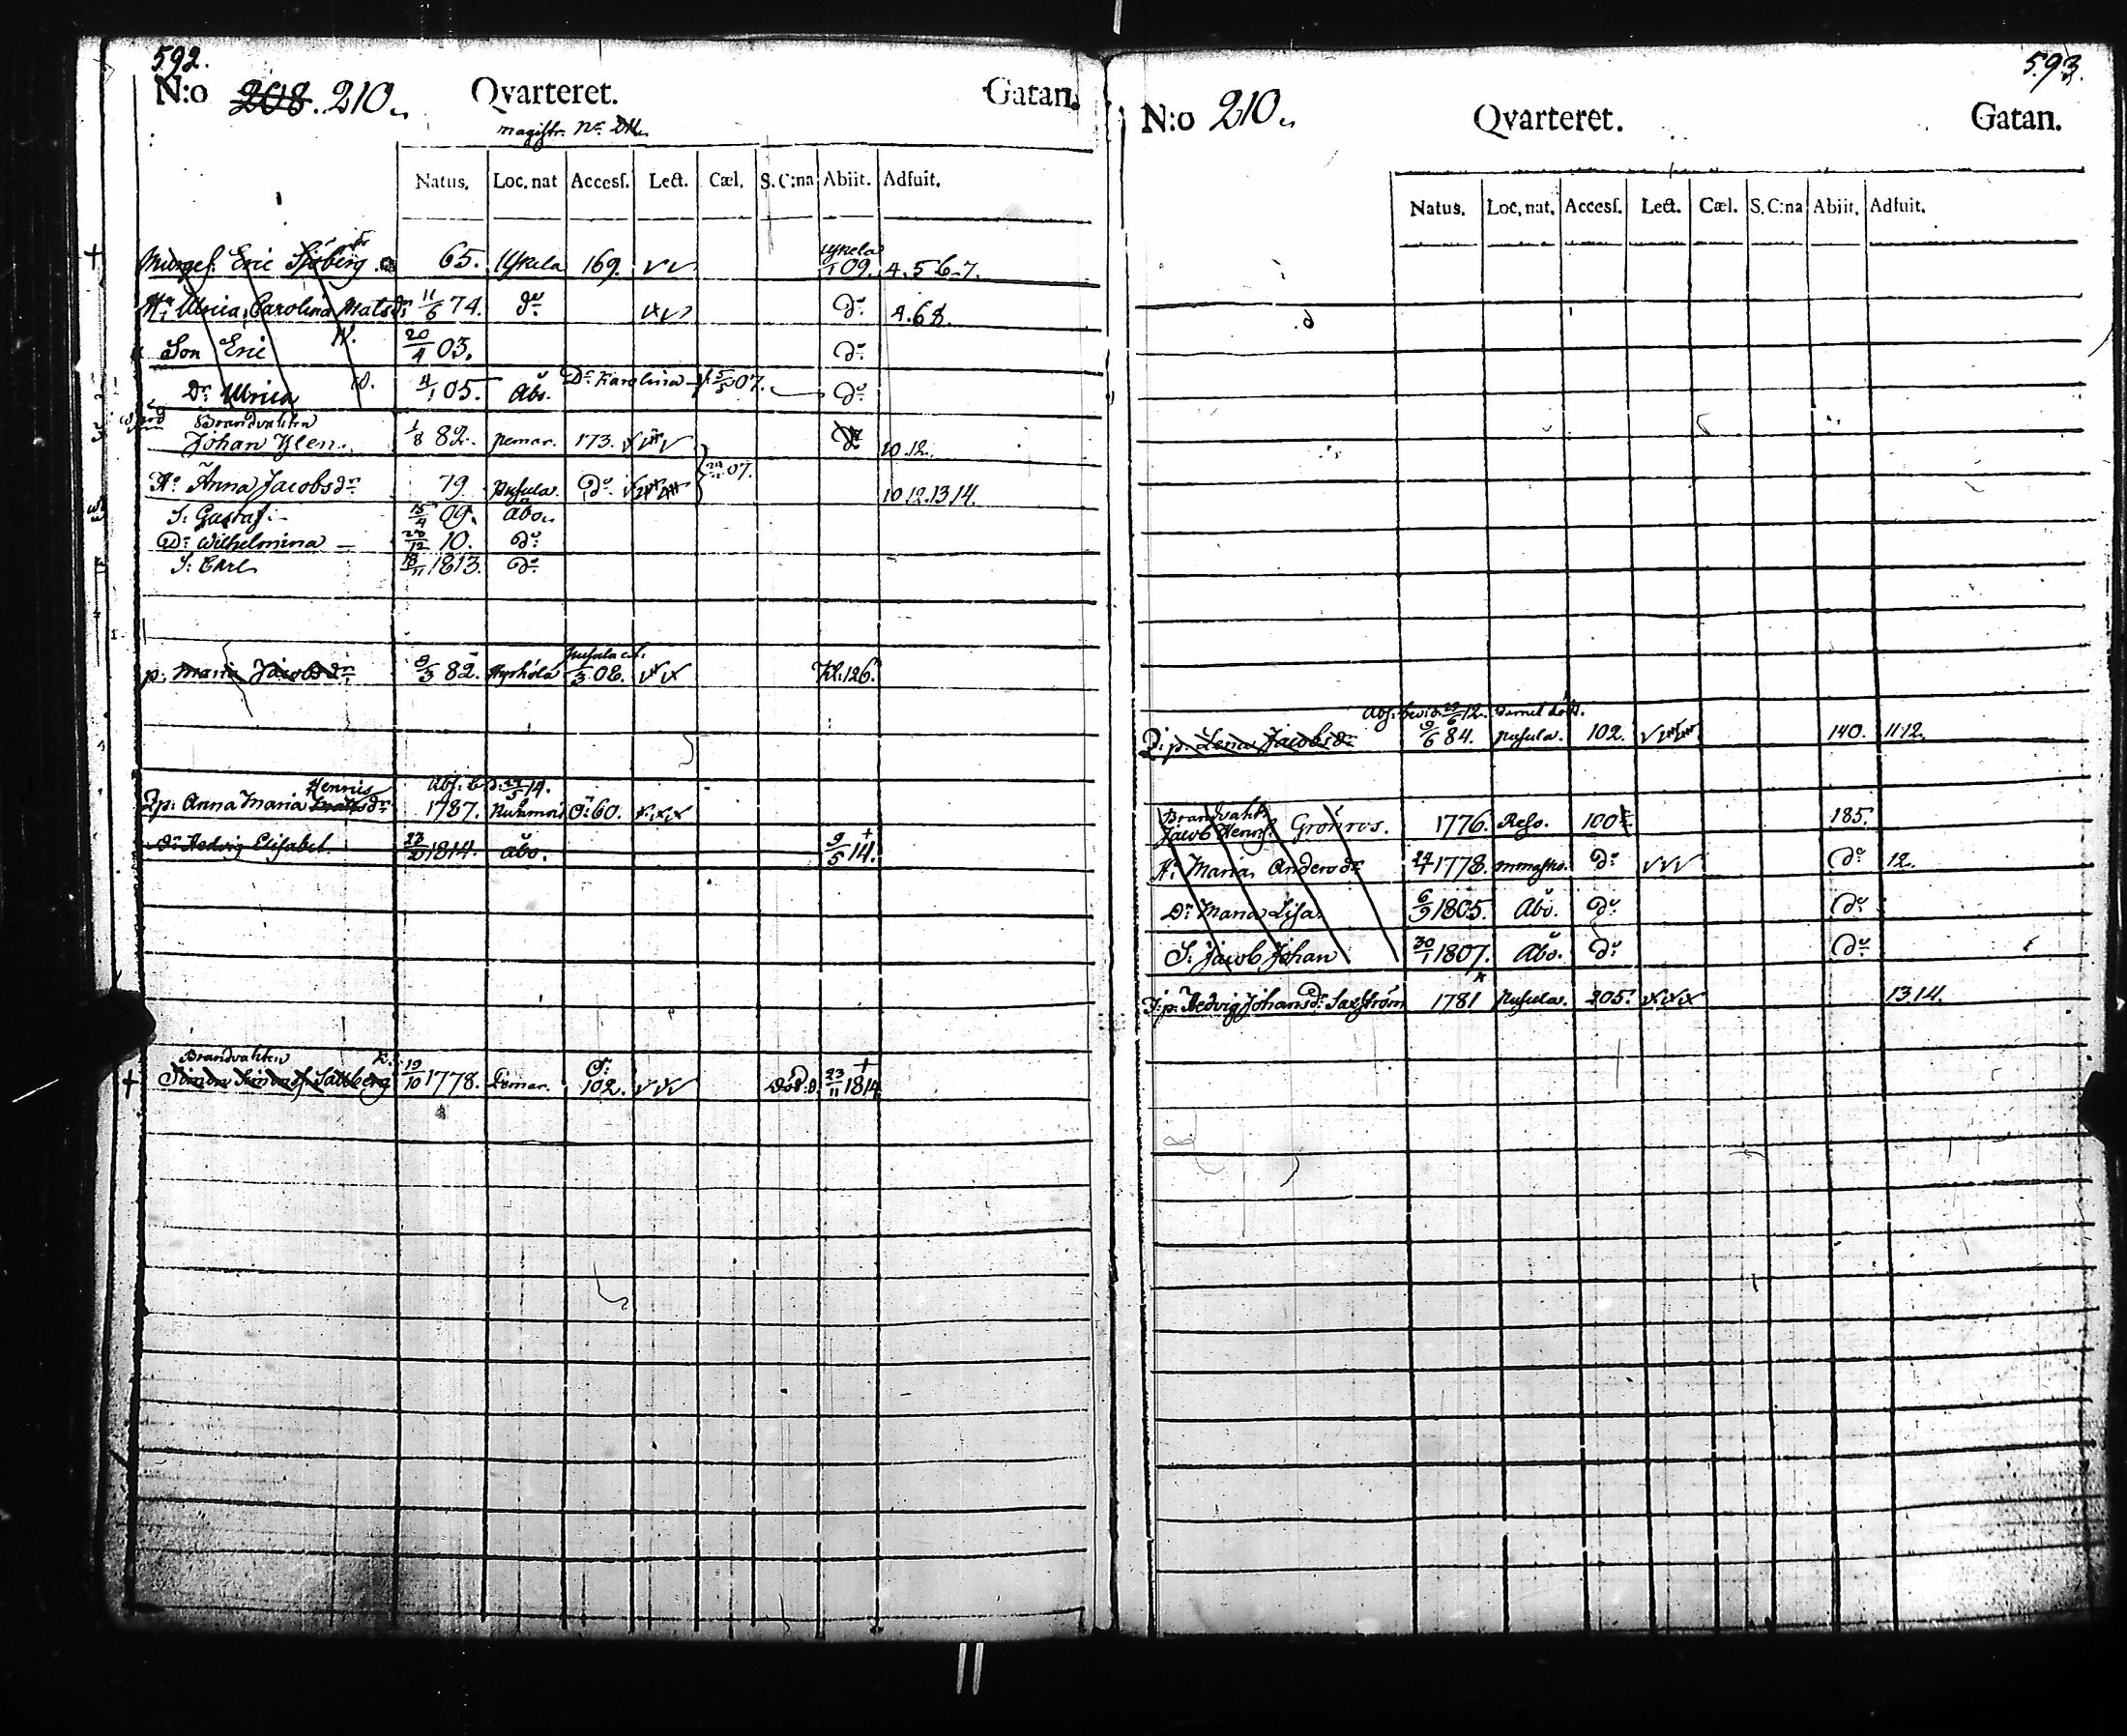 592.
N:o 208. 210. Qvarteret. Gatan.
magistr. No
Natus. Loc. nat Accesſ. Lect. Cæl. S. C:na Abiit. Adfuit.
Eric Sjöberg 65. Uskela 169. Uskela 1 09. 4. 5 6. 7.
H: Ulrica Carolina Matsdr 11/6 74. do do 4. 6 8.
Son Eric 20/4 03. do
Dr Ulrica 4/1 05 Åbo. Dr. Karolina 5/5 07. do
Brandvakten
Johan Ylen. 1/8 82. pemar. 173. 10. 12.
H: Anna Jacobsdr 79 Pusula. do 07. 10 12. 13 14.
S: Gustaf 15/4 09. Åbo
Dr Wilhelmina 10. do
S: Carl 18/11 1813. do
p: Maria Jacobsdr 9/3 82. 08. 126.
Hennis 14.
p: Anna Maria Mattsdr 1787. O: 60.
Dr Hedvig Elisabet. 1814. Åbo. 9/5 14. +
Brandvakten
Simon Simonss. Sallberg 19/10 1778. Pemar. O: 102. död. 23/11 1814 +
593.
N:o 210. Qvarteret. Gatan.
Natus. Loc. nat. Accesſ. Lect. Cæl. S. C:na Abiit. Adfuit.
12.
p: Lena Jacobsdr 9/6 84. pusula. 102. 140. 11 12.
Brandvakt.
Jacob Henrss. Grönros. 1776. Reso. 100 185.
H: Maria Andersdr 24/7 1778. do do 12.
Dr Maria Lisa. 6/9 1805. Åbo. do do
S: Jacob Johan 30/1 1807. Åbo. do do
p: Hedvig Johansdr Saxström 1781 Pusula. 205. 13 14.